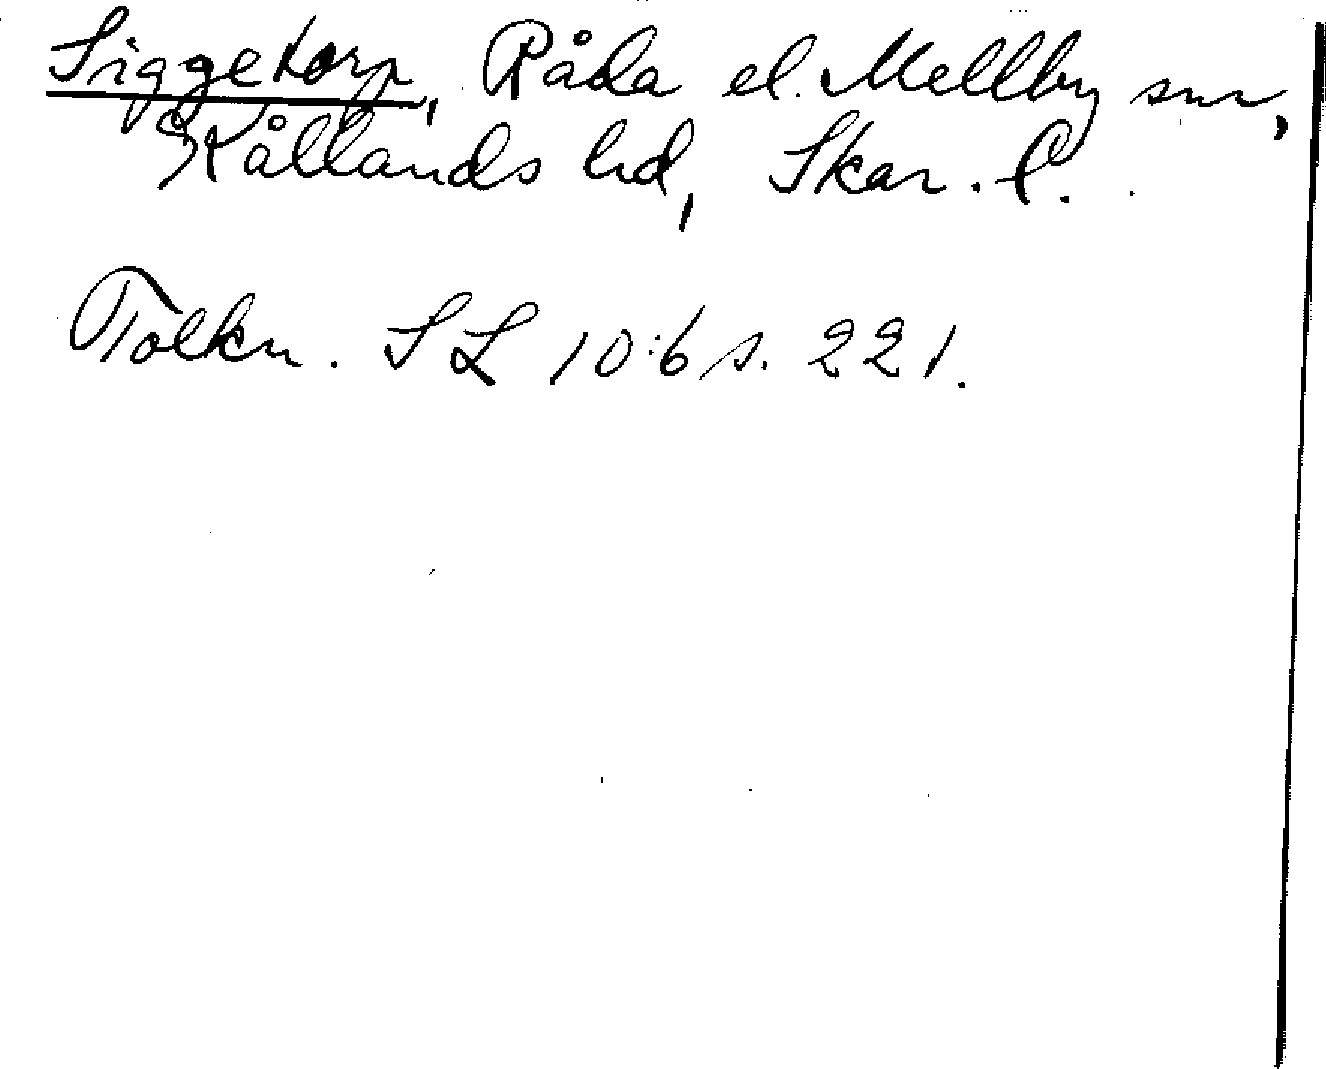 Siggetorp, Råda el. Mellby snr,
Kållands hd, Skar. l.
Tolkn. SL 10:6 s. 221.